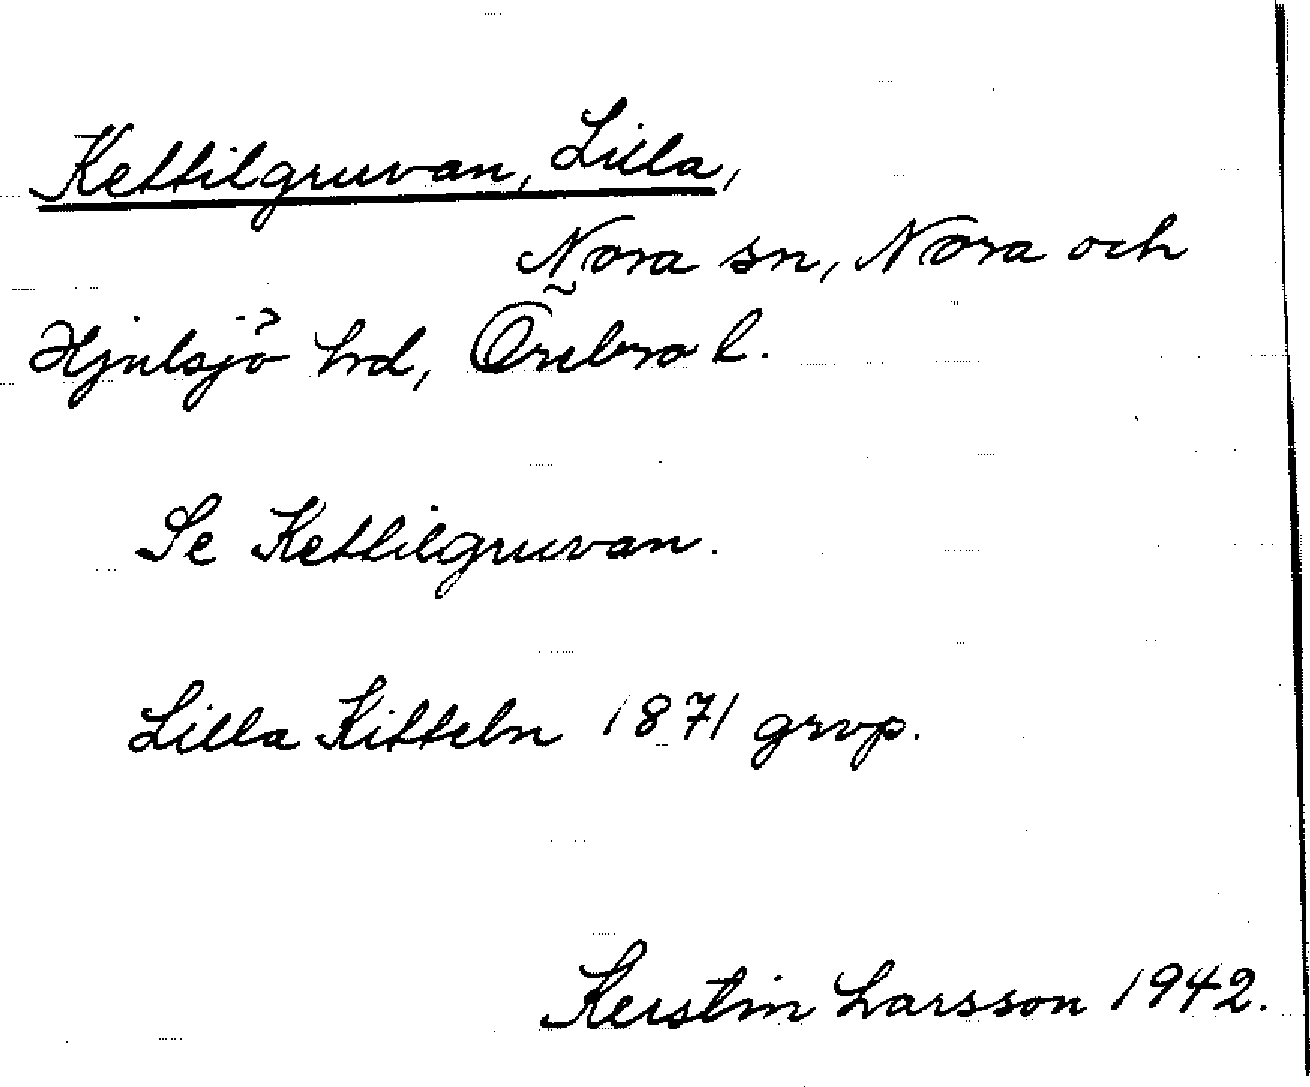 Kettilgruvan, Lilla,
Nora sn, Nora och
Hjulsjö hrd, Örebro l.
Se Kettilgruvan.
Lilla Kitteln 1871 grvp.
Kerstin Larsson 1942.